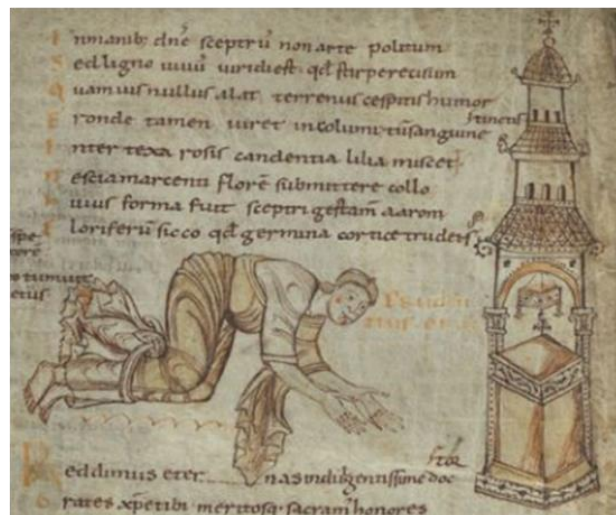 Inmanib; dn̄e sceptrū non arte politum
Sed ligno uiuū uiridi est. qd stirpe recisum
Quamuis nullus alat terrenus cespitis humor
Fronde tamen uiret incolumi. tū sanguine tinctis
Inter texa rosis candentia lilia miscet
Nescia marcenti florē submittere collo
Huius forma fuit sceptri gestam̄ aarom
Floriferū sicco qd germina cortice trudens
spe
tere
o tumuit
etus
Pruden
tius. orat
Reddimus eter nas indulgentissime doc tor
Grates xp̄e tibi meritosq. sacram; honores